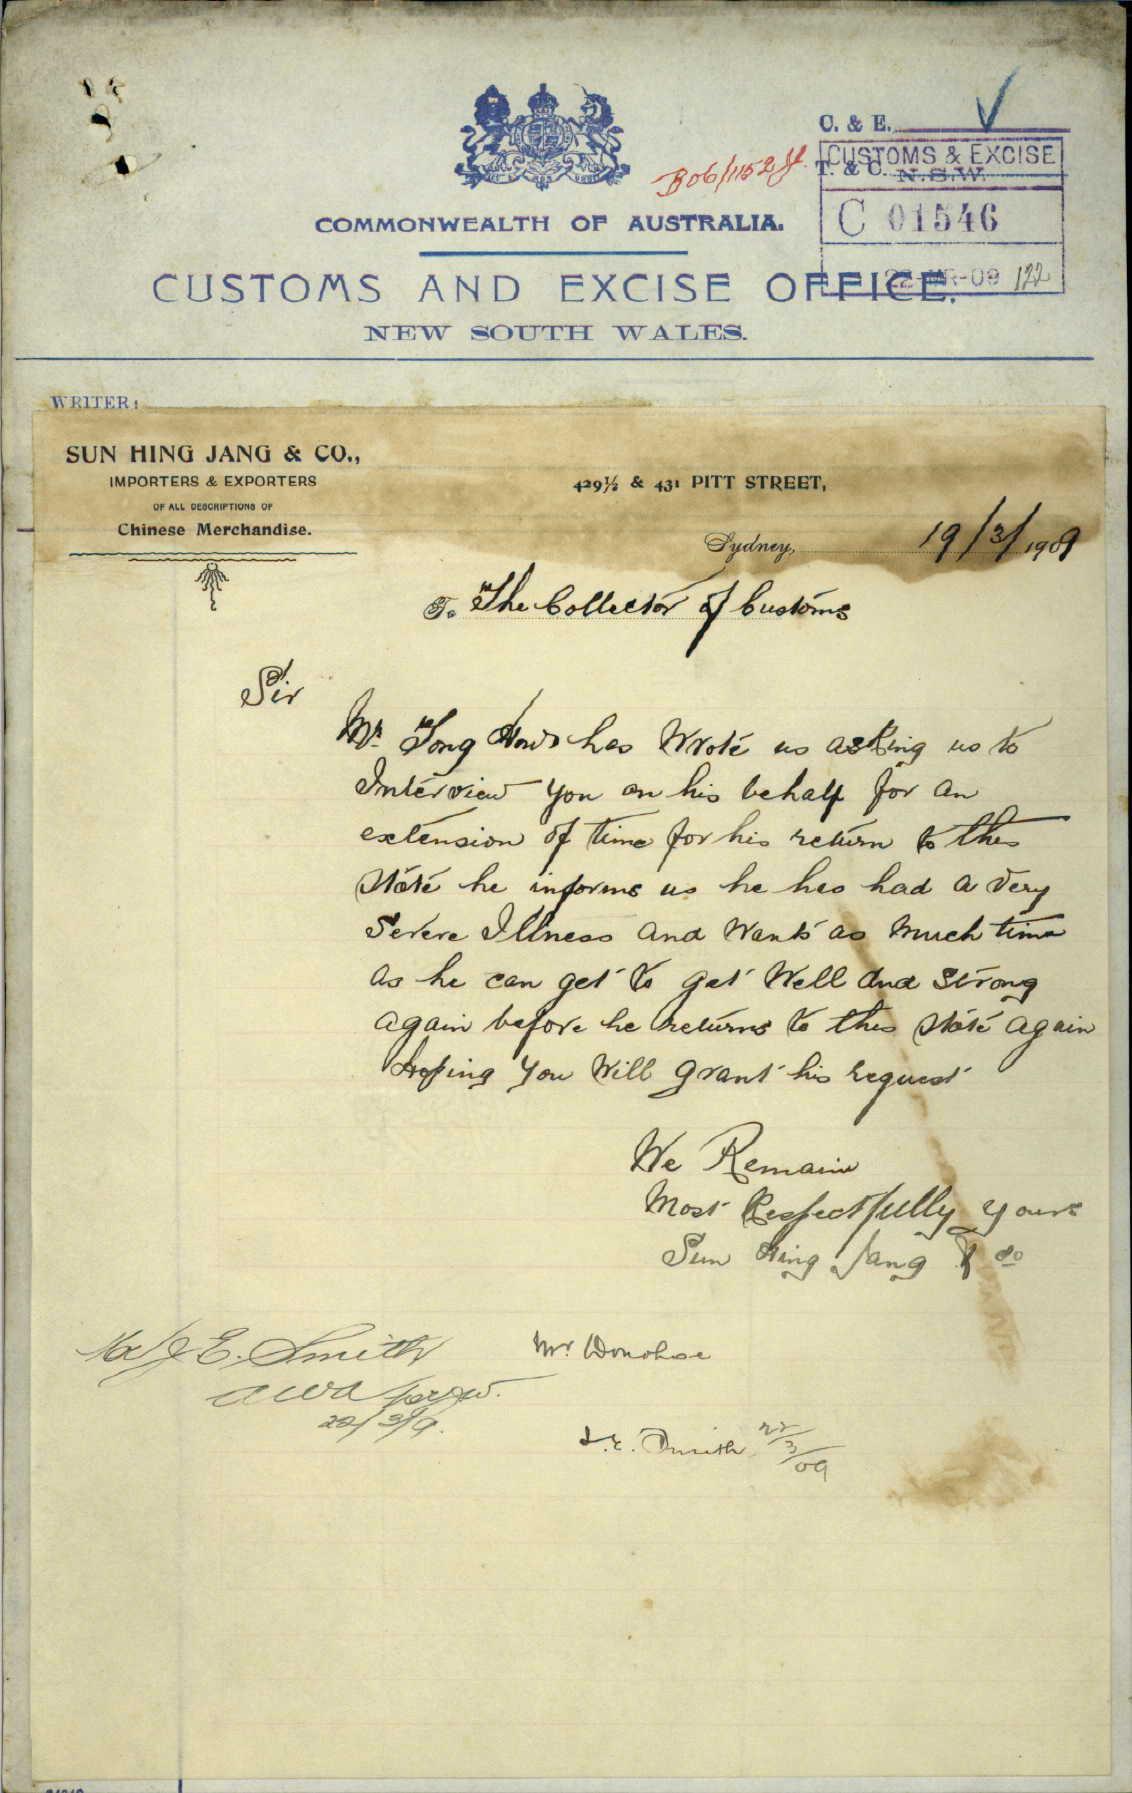 C. & E.
T. & C.
CUSTOMS & EXCISE
N.S.W.
C 01546
22-MR-09 122
B06/1152
COMMONWEALTH OF AUSTRALIA.
CUSTOMS AND EXCISE OFFICE.
NEW SOUTH WALES.
WRITER:
SUN HING JANG & CO.,
IMPORTERS & EXPORTERS
OF ALL DESCRIPTIONS OF
Chinese Merchandise.
429½ & 431 PITT STREET,
Sydney, 19/3/1909
To The Collector of Customs
Sir
Mr. Tong How has Wrote us asking us to
Interview you on his behalf for an
extension of time for his return to this
State he informs us he has had a very
Severe Illness and Wants as Much time
as he can get to get Well and Strong
again before he returns to this State again
Hoping You Will grant his request
We Remain
Most Respectfully Yours
Sun Hing Jang & Co
J E. Smith
22/3/9.
Mr Donohoe
J.E. Smith 22/3/09